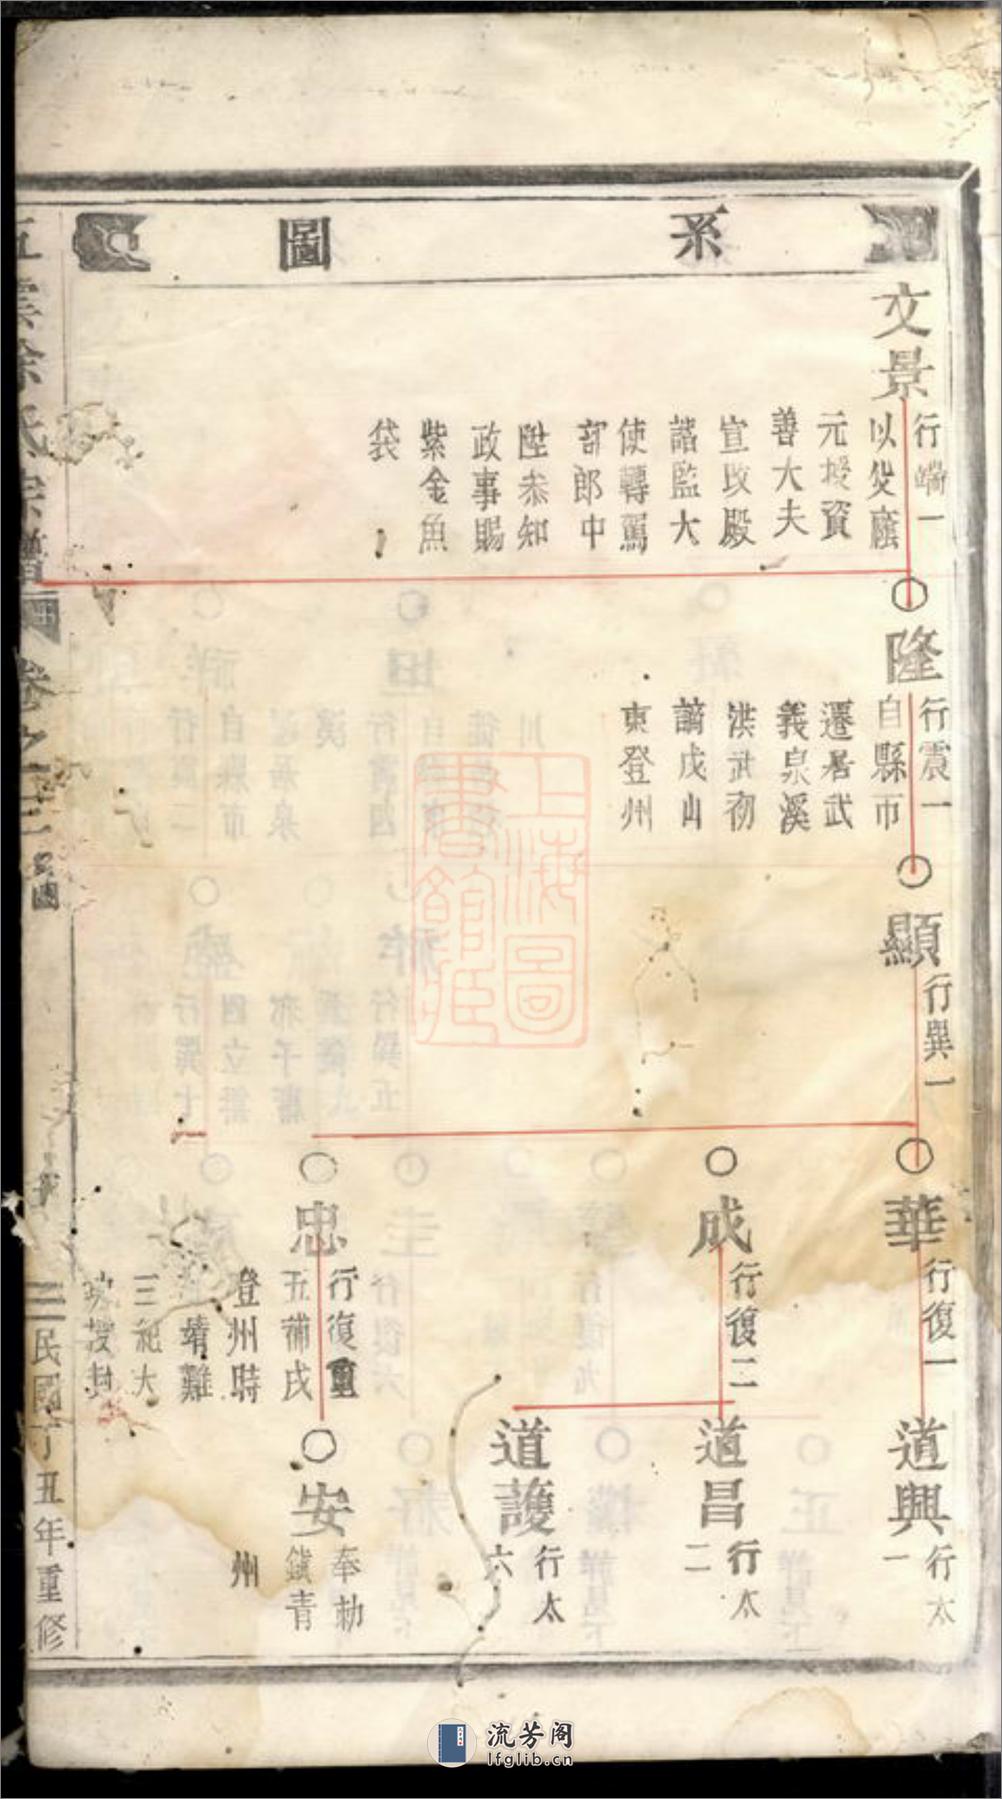 系圖
文景
行端一
以父廕
元授資
善大夫
宣政殿
諮監大
使轉駕
部郎中
陞叅知
政事賜
紫金魚
袋
隆
行震一
自縣市
遷居武
義泉溪
洪武初
謫戍山
東登州
顯
行巽一
華
行復一
成
行復二
忠
行復重
五補戍
登州時
靖難
三紀大
授封
道興
行太
一
道昌
行太
二
道護
行太
六
安
奉勅
鎮青
州
氏宗譜
卷之二
圖
三
民國丁丑年重修
上海圖書館藏
流芳阁
lfglib.cn